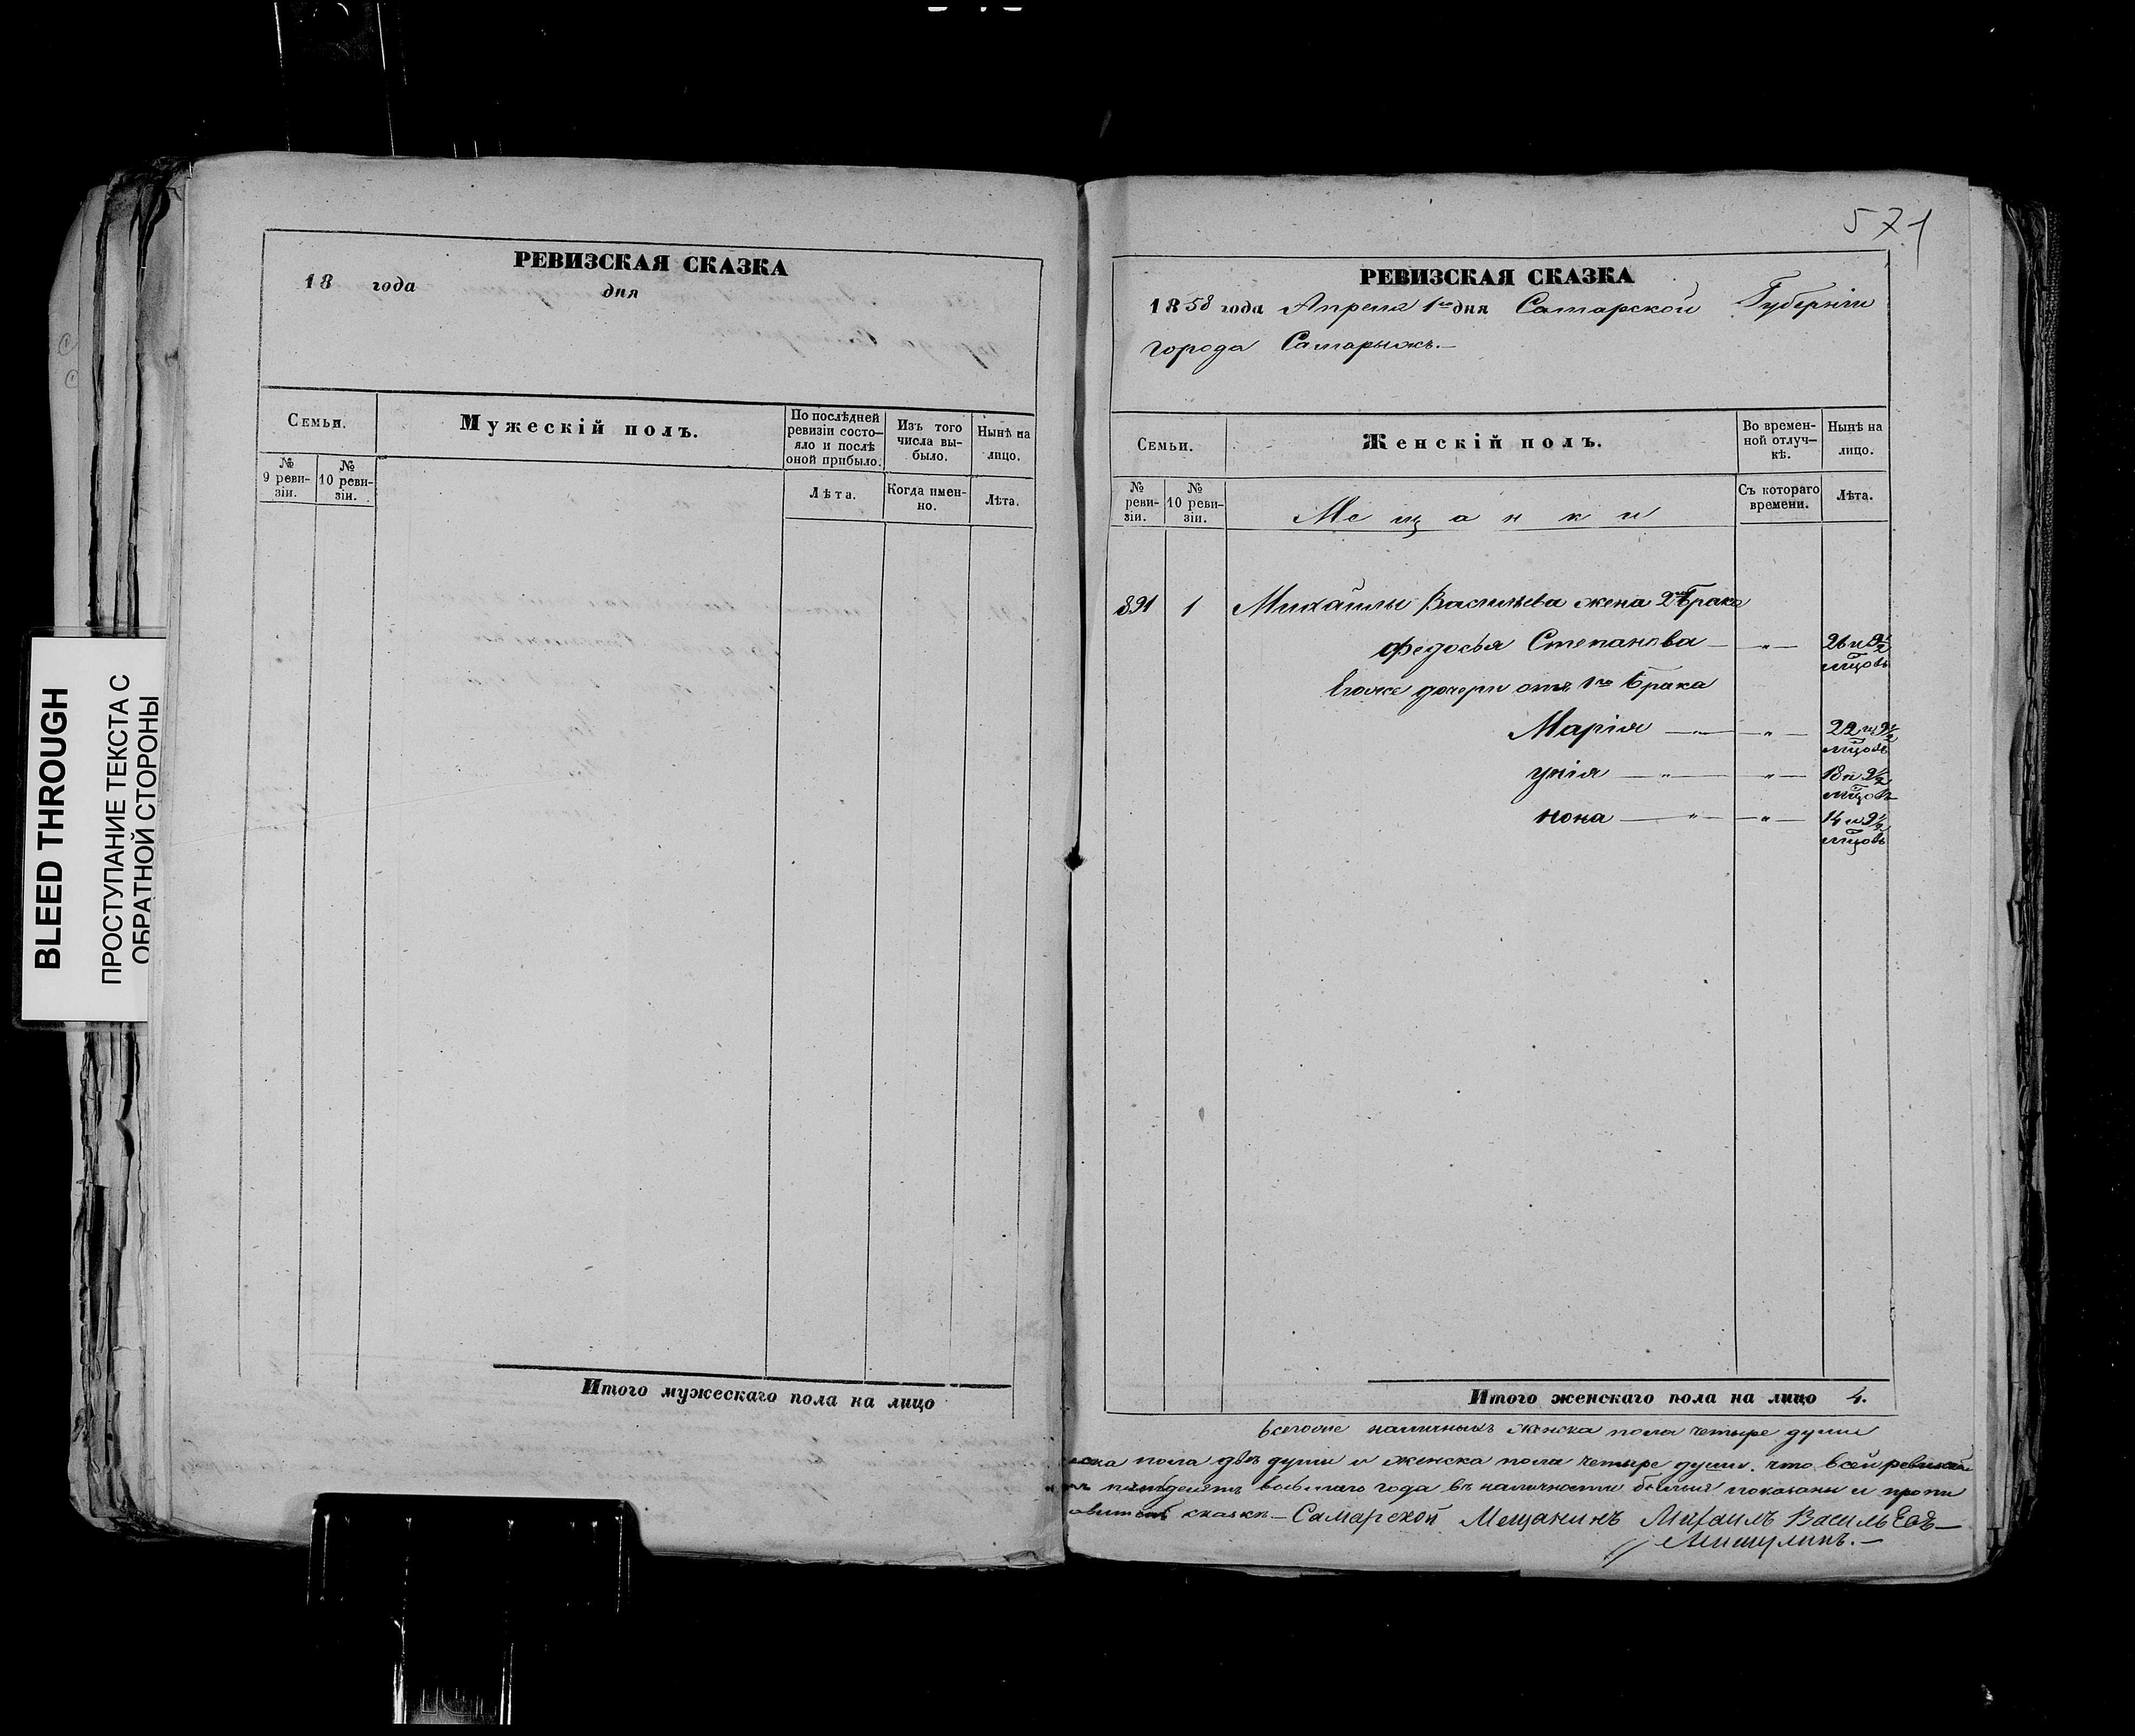 BLEED THROUGH
ПРОСТУПАНИЕ ТЕКСТА С
ОБРАТНОЙ СТОРОНЫ
РЕВИЗСКАЯ СКАЗКА
18 года дня
Семьи.
Мужескій полъ.
По послѣдней
ревизіи состо-
яло и послѣ
оной прибыло.
Изъ того
числа вы-
было.
Нынѣ на
лицо.
№
9 реви-
зіи.
№
10 реви-
зіи.
Лѣта.
Когда имен-
но.
Лѣта.
Итого мужескаго пола на лицо
571
РЕВИЗСКАЯ СКАЗКА
1858 года Апреля 1го дня Самарской Губерніи
города Самары
Семьи.
Женскій полъ.
Во времен-
ной отлуч-
кѣ.
Нынѣ на
лицо.
№
реви-
зіи.
№
10 реви-
зіи.
Мещанки
Съ котораго
времени.
Лѣта.
891 1 Михайлы Васильева жена 2го брака
Федосья Степанова — „ — 26 и 9½
мцовъ
Егоже дочери отъ 1го брака
Марія — „ — „ — 22 и 9½
мцовъ
— „ — „ — 18 и 9½
мцовъ
нона — „ — „ — 14 и 9½
мцовъ
Итого женскаго пола на лицо 4.
наличныхъ женска пола четыре души
пола двѣ души и женска пола четыре души. что всей
года въ наличности показаны и
сказки — Самарской Мещанинъ Михаилъ Васильевъ —
Мишулинъ. —